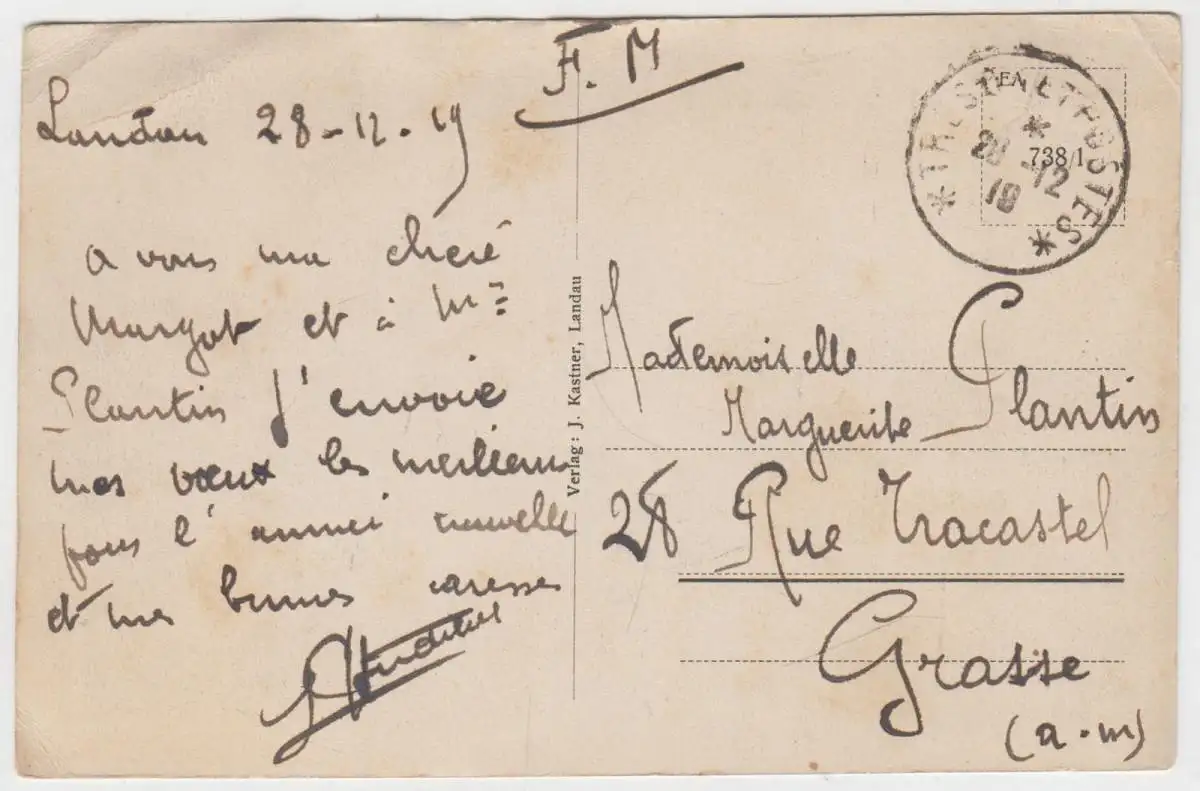 F. M
Landau 28-12-19
a vous ma cheré
Margot et à Mme
Plantin j'envoie
mes vœux les meilleurs
pour l'année nouvelle
et mes bonnes caresses
Verlag: J. Kastner, Landau
* TRESOR ET POSTES *
*
28 -12
19
EA
738/1
Mademoiselle
Marguerite Plantin
28 Rue Tracastel
Grasse
(a.m)